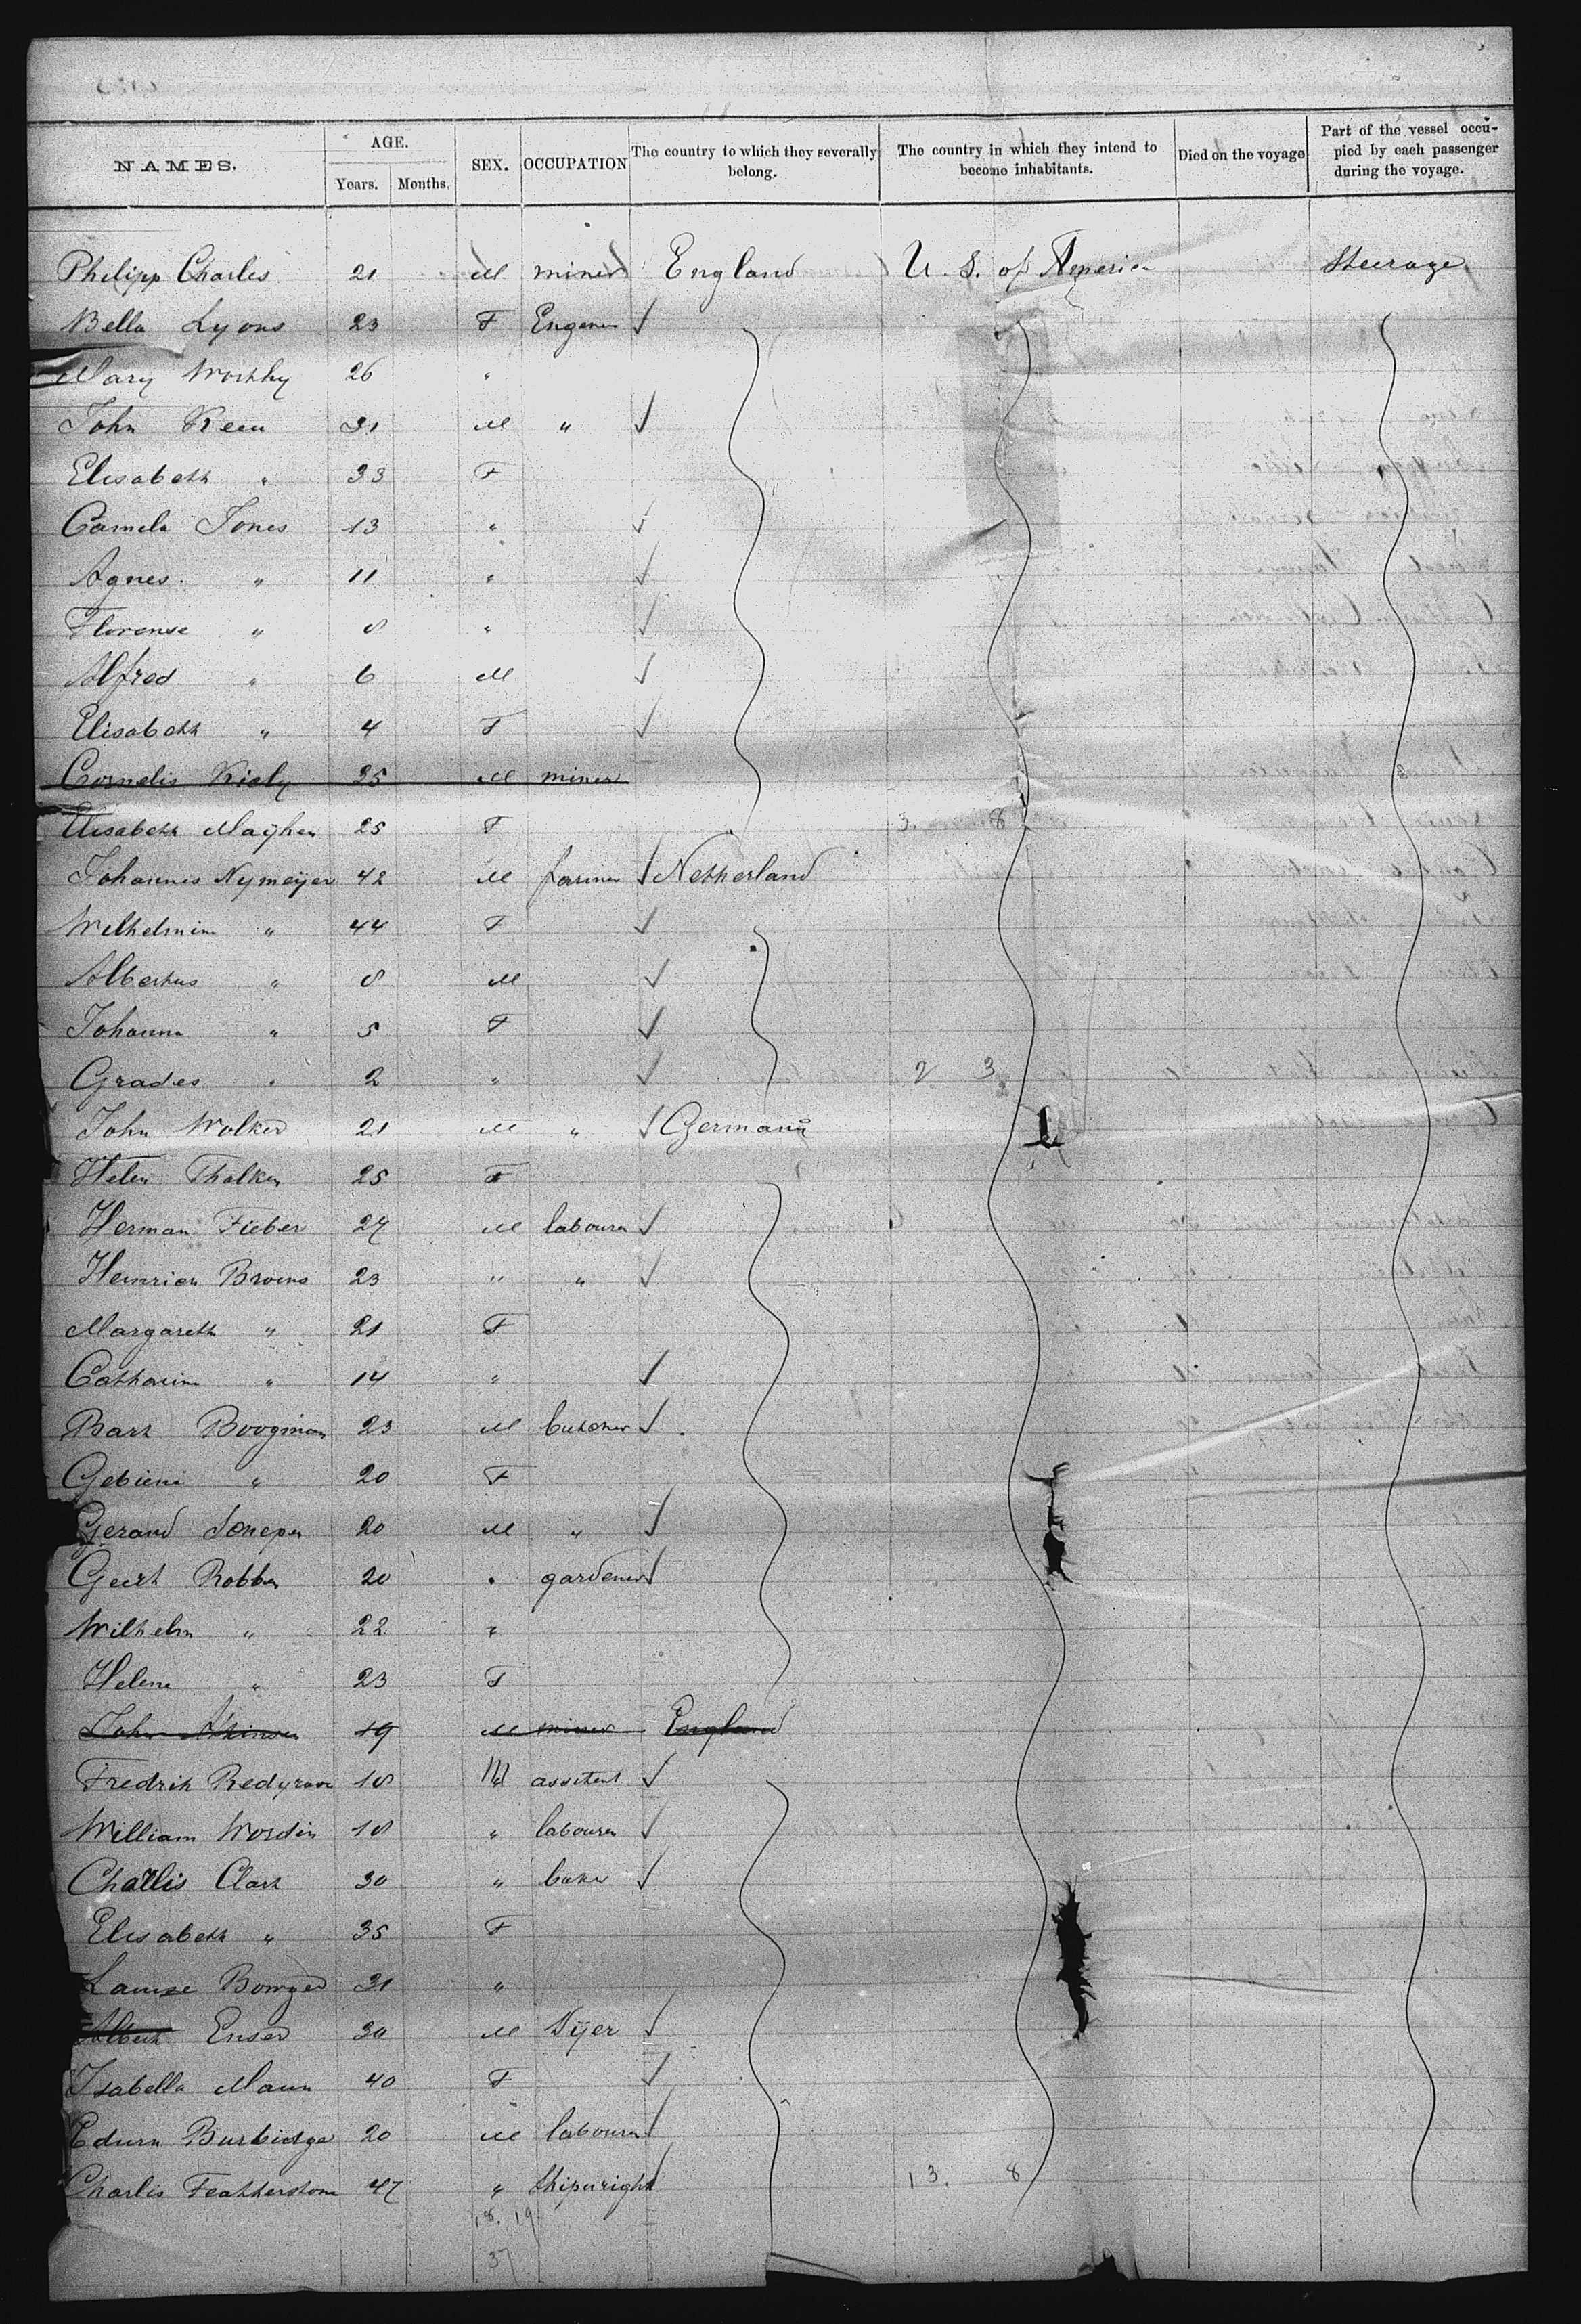 NAMES. AGE. Years. Months. SEX. OCCUPATION The country to which they severally belong. The country in which they intend to become inhabitants. Died on the voyage Part of the vessel occupied by each passenger during the voyage.
Philipp Charles 21 M miner England U. S. of America Steerage
Bella Lyons 23 F Engener √
Mary Worthy 26 "
John Keen 31 M " √
Elisabeth " 33 F
Camela Jones 13 " √
Agnes " 11 " √
Florense " 8 " √
Alfred " 6 M √
Elisabeth " 4 F √
Cornelis Kiely 25 M miner
Elisabeth Mayhen 25 F 3. 8
Johannes Nymeijer 42 M farmer √ Netherland
Wilhelmin " 44 F √
Albertus " 8 M √
Johanna " 5 F √
Grades " 2 " √ 2 3
John Wolker 21 M " √ Germani
Helen Thalken 25 F
Herman Fieber 27 M labourer √
Heinrich Broens 23 " " √
Margareth " 21 F
Catharine " 14 " √
Bart Boogman 23 M butcher √
Gebiena " 20 F
Gerand 20 M " √
Geert Robben 20 " gardener √
Wilhelm " 22 "
Helene " 23 F
John Atkinson 19 M miner England
Fredrik Redgrave 18 M assitent √
William Wordin 18 " labourer √
Charlis Clark 30 " baker √
Elisabeth " 35 F
Lauise Bowyer 31 "
Albert Enser 30 M Dÿer √
Isabella Mann 40 F √
Edurn Burbidge 20 M labourer √
Charlis Featherstone 47 " Shipwright √ 13. 8
18. 19
37